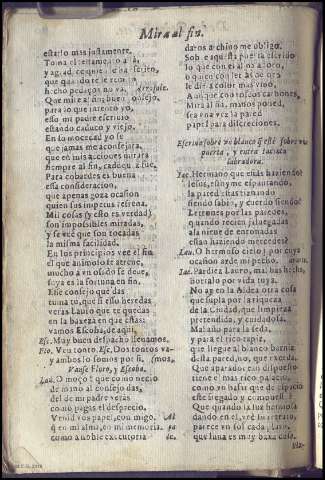 Mira al fin.
estarlo mas justamente.
Toma el testamento allà,
que quando te le
hecho pedaços no vá. Arrojale.
Que mire al fin; buen consejo,
para lo que intento yo,
esso mi padre escriuio
estando caduco y viejo.
En su mocedad yo sè
que jamas me aconsejara,
que en mis acciones mirara
siempre al fin, caduco
Para cobardes es buena
essa consideracion,
que apenas goza ocasion
quien sus impetus refrena.
Mil cosas (y esto es verdad)
son impossibles miradas,
y se vè que son tocadas
la misma facilidad.
En los principios vee el fin
el que animoso se atreue,
mucho a vn osado se deue,
suya es la fortuna en fin.
Esse consejo que das
toma tu, que si esso heredas
veràs Lauso que te quedas
en la baxeza en que estàs:
vamos Escoba, de aqui.
Esc. Muy buen despacho lleuamos.
Flo. Vete tonto. Esc. Dos tontos va-
y ambos lo somos por ti. (mos,
Vanse Floro, y Escoba.
Lau. O moço! que como necio
de mano al consejo das,
del de mi padre veràs
como pagas el desprecio.
Venid vos papel, conmigo,
que en mi alma, en mi memoria
como a noble executoria
me obligo.
Sobre aquesta puerta escriuo
lo que con el al no a
o quien con
le diera color mas viuo,
A unque con toscos carbones,
Mira al fin, manos poned,
sea vna vez la pared
papel para discreciones.
Escriue sobre vn blanco q̃ estè sobre vna
puerta, y entra Iacinta
labradora.
Iac. Hermano que estais haziendo?
Iesus, y muy de espantando,
la pared estais tiznando
siendo sabio, y cuerdo siendo?
Letrones por las paredes,
quando recien jaluegadas
a la nieue de entonadas
estan haziendo mercedes?
Lau. O hermoso cielo! por cuya
ocasion arde mi pecho.
Iac. Pardiez Lauro, mal has hecho,
borralo por vida tuya.
No ay en la Aldea otra cosa
que supla por la riqueza
de la Ciudad, que limpieza
pretendida, y cuidadosa.
Mal año para la seda,
y para el rico tapiz,
que llegue al blanco barniz
desta pared, no, que exceda.
Que aparador en dispuesto
tiene el mas rico palacio,
como vn basar que de espacio
estè fregado y compuesto?
Que quando la luz hermosa
dando en el, vee su retrato,
parece vn sol cada plato,
que luna es muy baxa cosa.